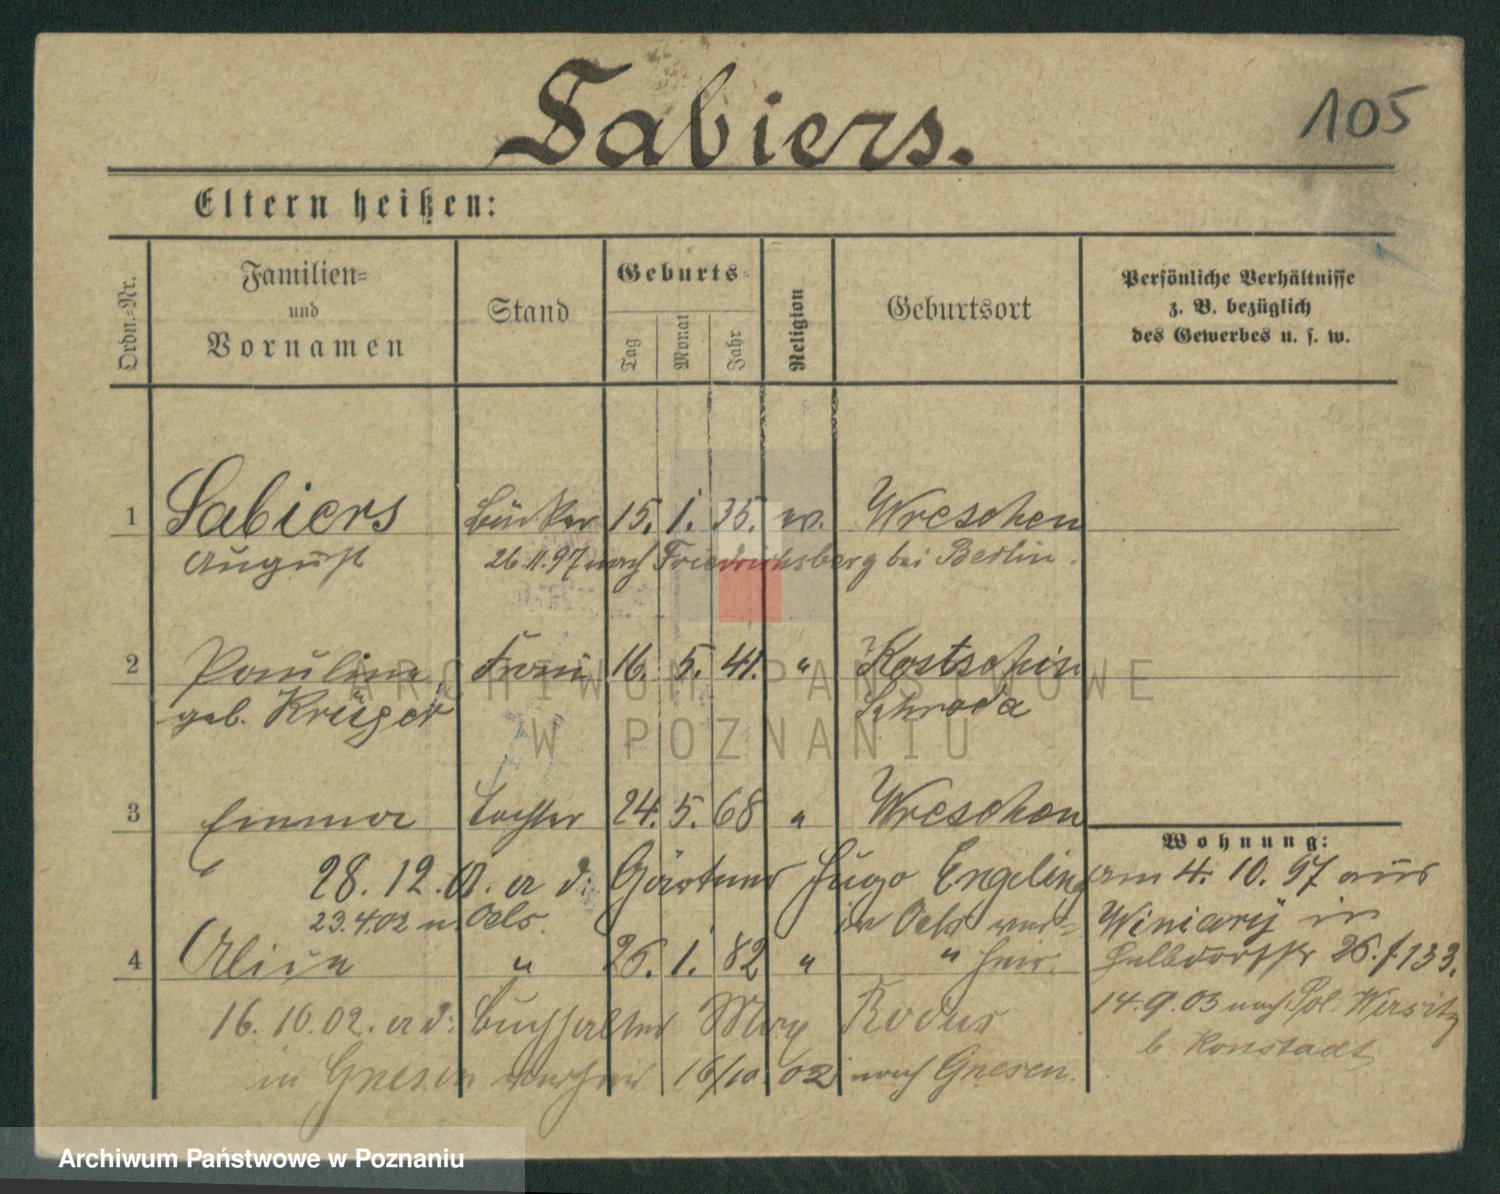 Sabiers.
105
Eltern heißen:
Ordn.-Nr.
Familien-
und
Vornamen
Stand
Geburts-
Tag
Monat
Jahr
Religion
Geburtsort
Persönliche Verhältnisse
z. B. bezüglich
des Gewerbes u. s. w.
1 Sabiers 15. 1. 35. ev. Wreschen
August 26.11.97 nach Friedrichsberg bei Berlin.
2 Pauline Frau 16. 5. 41. " Kostschin
geb. Krüger Schroda
3 Emma Tochter 24. 5. 68 " Wreschen
Wohnung:
28. 12. a. d. Gärtner Hugo Engeling am 4. 10. 97 aus
23.4.02 n. Oels. in Oels ver- Winiary in
4 Alice " 26. 1. 82 " " heir. Halbdorfstr 26. f. 133.
16. 10. 02. a. d. Buchhalter Max 14.9.03 nach Pol. Würbitz
b. Konstadt
in Gnesen verheir 16/10. 02 nach Gnesen.
ARCHIWUM PAŃSTWOWE
W POZNANIU
Archiwum Państwowe w Poznaniu